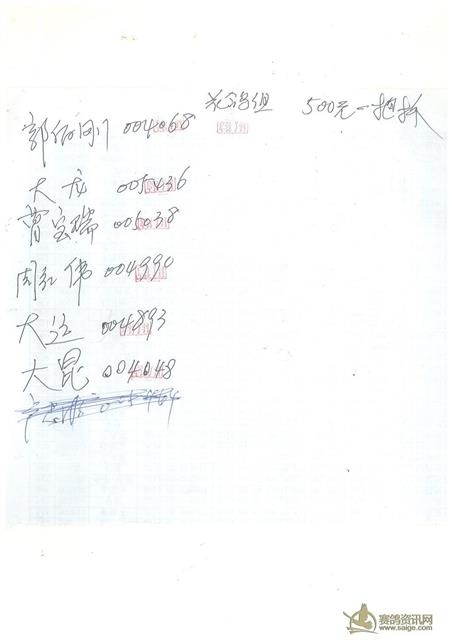 花鸽组 500元一把抓
郭伯刚 004068
大龙 005436
曹宝瑞 005038
周红伟 004990
大运 004893
大昆 004048
赛鸽资讯网
www.saige.com